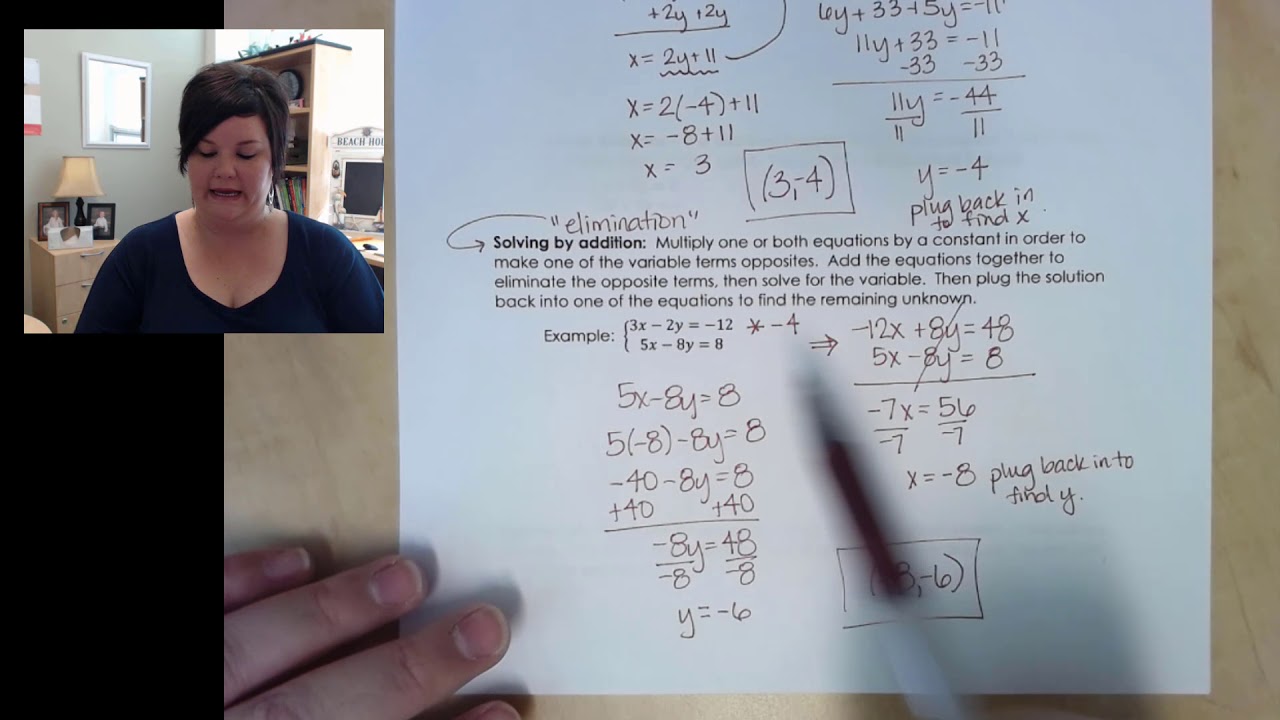 +2y +2y
x = 2y+11
x = 2(-4)+11
x = -8+11
x = 3
(3,-4)
6y+33+5y=-11
11y+33 = -11
-33 -33
11y = -44
11 11
y = -4
plug back in
to find x.
BEACH
"elimination"
Solving by addition: Multiply one or both equations by a constant in order to
make one of the variable terms opposites. Add the equations together to
eliminate the opposite terms, then solve for the variable. Then plug the solution
back into one of the equations to find the remaining unknown.
Example: {3x – 2y = –12 * -4
5x – 8y = 8
⇒ -12x + 8y = 48
5x - 8y = 8
-7x = 56
-7 -7
x = -8 plug back in to
find y.
5x-8y=8
5(-8)-8y=8
-40-8y=8
+40 +40
-8y=48
-8 -8
y=-6
,-6)